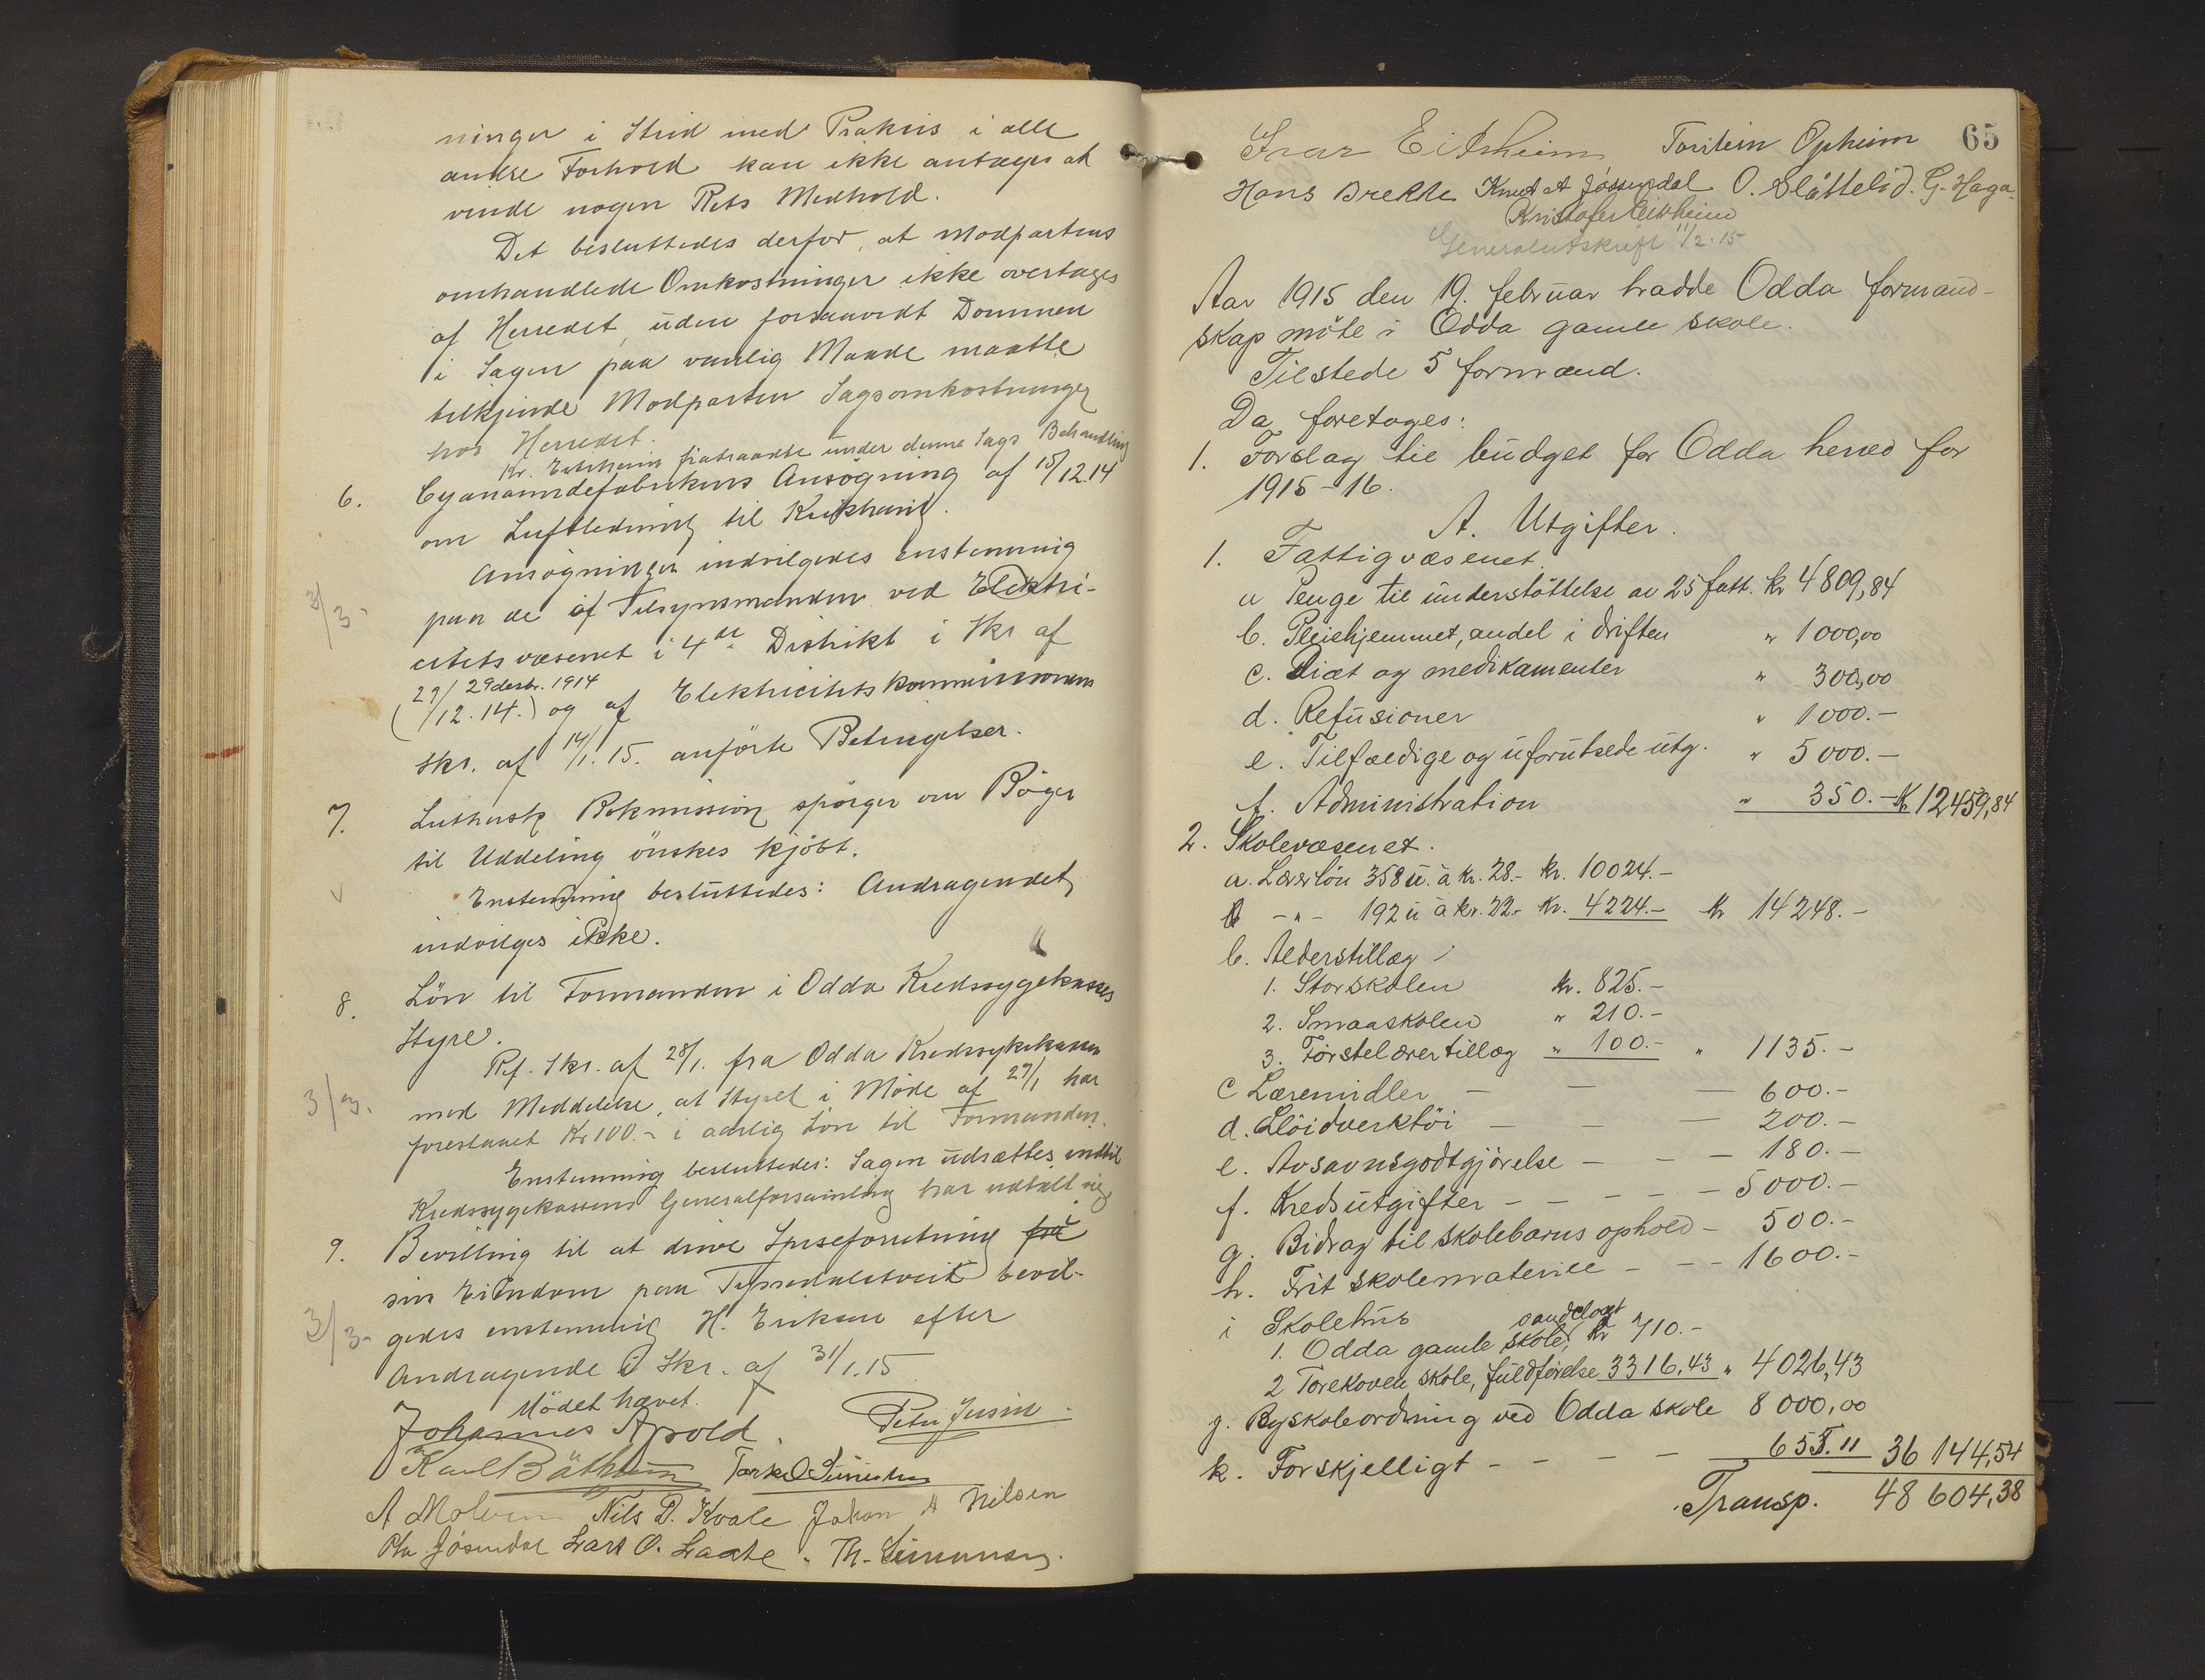 ninger i Strid med Praksis i alle
andre Forhold kan ikke antages at
vinde nogen Rets Medhold.
Det besluttedes derfor, at Modpartens
omhandlede Omkostninger ikke overtages
af Herredet, uden forsaavidt Dommen
i Sagen paa vanlig Maade maatte
tilkjende Modparten Sagsomkostninger
hos Herredet.
Kr. Eitrheim fratraadte under denne Sags Behandling
6. Cyanamidefabrikens Ansögning af 15/12.14
om Luftledning til
Ansögningen indvilgedes enstemmig
3/3-
paa de af Tilsynsmanden ved Elektri-
citetsvæsenet i 4de Distrikt i Skr af
29 desbr. 1914
(29/12.14.) og af Elektricitetskommissionens
Skr. af 14/1.15. anförte Betingelser.
7. Luthersk Bokmission spörger om Böger
til Uddeling önskes kjöbt.
V
Enstemmig besluttedes: Andragendet
indvilges ikke.
8. Lön til Formanden i Odda Kredssygekasses
Styre.
Ref. Skr. af 28/1. fra Odda Kredssykekasse
3/3.
med Meddelelse, at Styret i Möde af 27/1 har
foreslaaet Kr 100.- i aarlig Lön til Formanden.
Enstemmig besluttedes: Sagen udsættes indtil
Kredssygekassens Generalforsamling har udtalt sig
9. Bevilling til at drive Spiseforretning fra
sin Eiendom paa Tyssedalstveit bevil-
3/3-
gedes enstemmig H. Eriksen efter
Andragende i Skr. af 31/1.15
Mödet hævet.
Johannes Apold. Peter Jusin
Karl Bäthum Torkel
A Molven Nils D. Kvale Johan A Nilsen
Ola Jösendal Lars O. Laate. Th. Simonsen.
65
Ivar Eitrheim Torstein Opheim
Hans Brekke Knut A Jössendal O. Slåttelid. G. Haga.
Kristofer Eitrheim
Generalutskrift 11/2.15
Aar 1915 den 19. februar hadde Odda formand-
skap möte i Odda gamle skole.
Tilstede 5 formænd.
Da foretoges:
1. Forslag til budget for Odda herred for
1915-16.
A. Utgifter.
1. Fattigvæsenet.
a Penge til understöttelse av 25 fatt. kr 4809,84
b. Pleiehjemmet, andel i driften " 1000,00
c. Diæt og medikamenter " 300,00
d. Refusioner " 1000.-
e. Tilfældige og uforutsede utg. " 5000.-
f. Administration " 350.- Kr 12459,84
2. Skolevæsenet.
a. Lærerlön 358 u. à kr. 28.- kr. 10024.-
- " - 192 u à kr. 22.- kr. 4224.- kr 14248.-
b. Alderstillæg
1. Storskolen kr. 825.-
2. Smaaskolen " 210.-
3. Förstelærertillæg " 100.- " 1135.-
c Læremidler - - - 600.-
d. Slöidverktöi - - - 200.-
e. Avsavnsgodtgjörelse - - - 180.-
f. Kredsutgifter - - - - - 5000.-
g. Bidrag til skolebarns ophold - 500.-
h. Frit skolemateriell - - - 1600.-
i Skolehus
1. Odda gamle skole, sandelagt kr 710.-
2 Torekoven skole, fuldförelse 3316,43 " 4026,43
j. Byskoleordning ved Odda skole 8000,00
k. Forskjelligt - - - - 655.11 36144,54
Transp. 48604,38